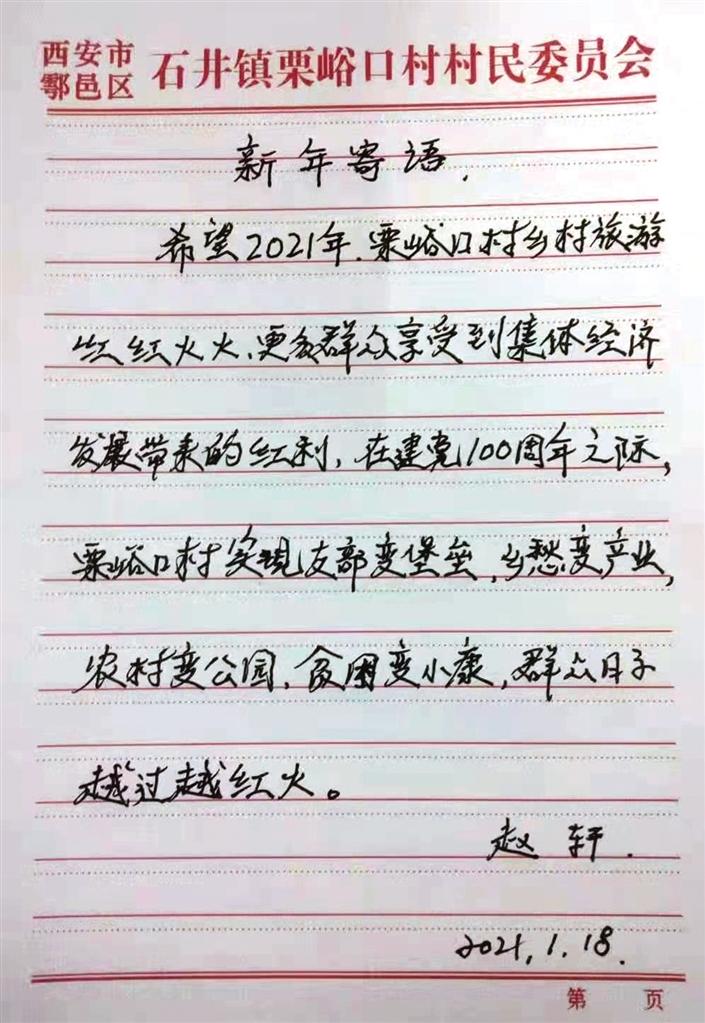 西安市
鄠邑区
石井镇栗峪口村村民委员会
新年寄语.
希望2021年,栗峪口村乡村旅游
红红火火,更多群众享受到集体经济
发展带来的红利,在建党100周年之际,
栗峪口村实现支部变堡垒,乡愁变产业,
农村变公园,贫困变小康,群众日子
越过越红火。
赵轩.
2021.1.18.
第 页